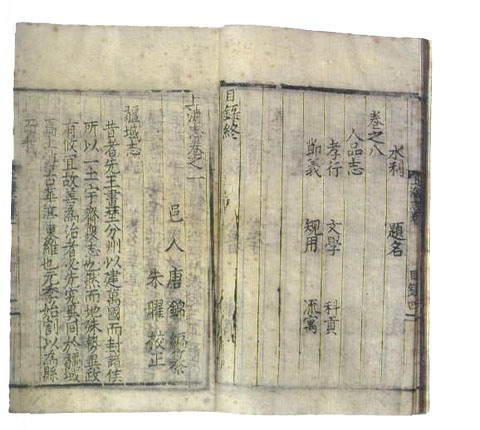 水利 題名
卷之八
人品志
孝行 文學 科貢
節義 規用 流寓
目錄終
上海志卷之一
邑人唐錦編纂
朱曜校正
疆域志
昔者先王畫埜分州以建萬國而封諸侯
所以一土宇齊志也然而地殊勢異政
有攸宜故善為治者必先於疆域
焉上海古華亭東維也元季始割以為縣